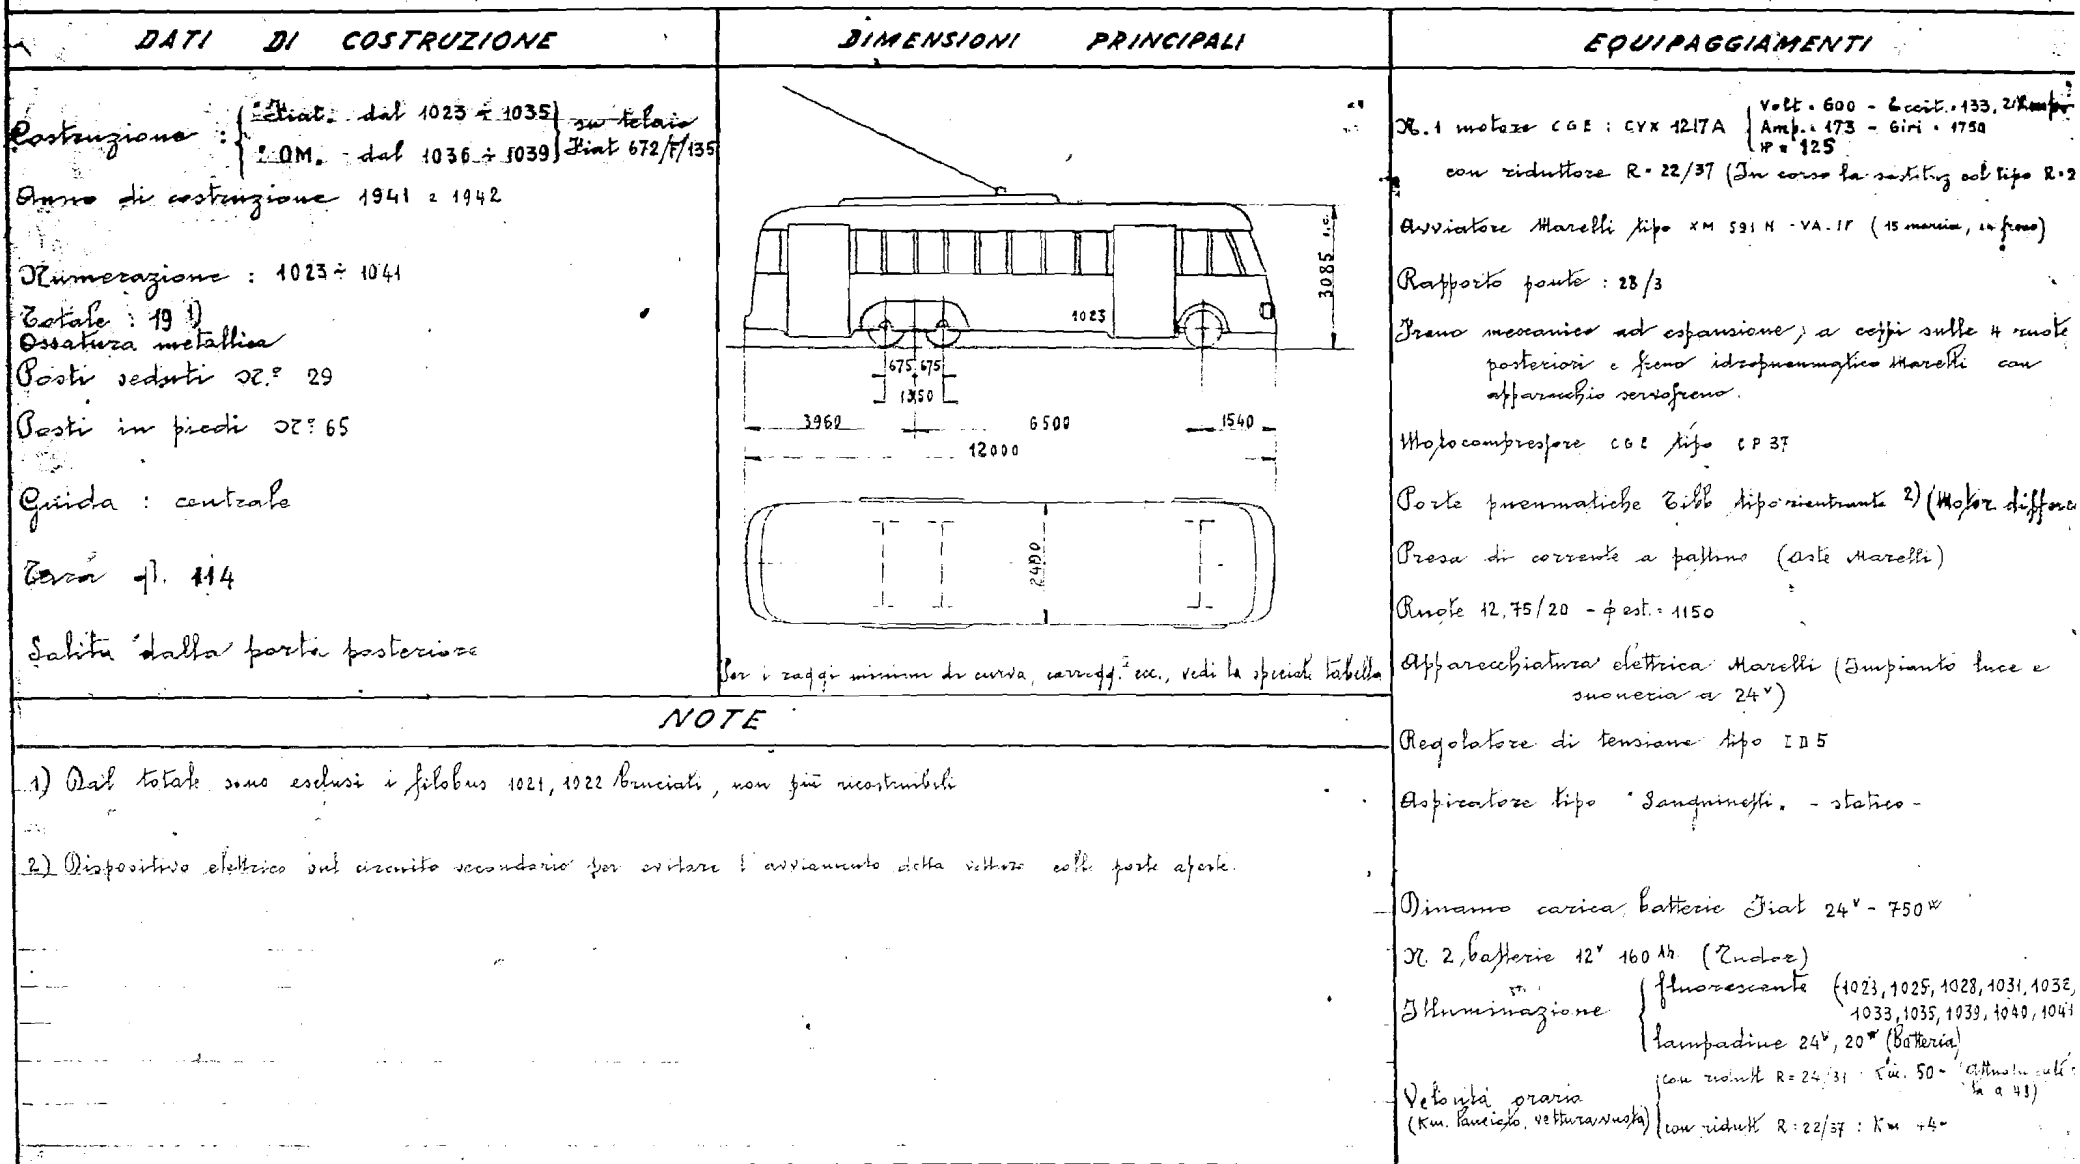 DATI DI COSTRUZIONE
Costruzione : "Fiat" dal 1023 ÷ 1035
"OM" dal 1036 ÷ 1039
su telaio
Fiat 672/F/135
Anno di costruzione 1941 e 1942
Numerazione : 1023 ÷ 1041
Totale : 19 1)
Ossatura metallica
Posti seduti N.° 29
Posti in piedi N.° 65
Guida : centrale
Tara q. 114
Salita dalla porta posteriore
DIMENSIONI PRINCIPALI
3085
1023
675 675
1350
3960 6500 1540
12000
2400
Per i raggi minimi di curva, carregg. ecc., vedi la speciale tabella
EQUIPAGGIAMENTI
N. 1 motore CGE : CVX 1217A
Volt. 600 - Eccit. 133,
Amp. 173 - Giri 1750
HP = 125
con riduttore R = 22/37 (In corso la sostituz col tipo
Avviatore Marelli tipo XM 591 N - VA. (15 marcia, freno)
Rapporto ponte : 28/3
Freno meccanico ad espansione, a ceppi sulle 4 ruote
posteriori e freno idropneumatico Marelli con
apparecchio servofreno.
Motocompressore CGE tipo CP 37
Porte pneumatiche Tibb tipo rientrante 2) (Motor
Presa di corrente a pattino (aste Marelli)
Ruote 12,75/20 - ϕ est. = 1150
Apparecchiatura elettrica Marelli (Impianto luce e
suoneria a 24ᵛ)
Regolatore di tensione tipo ID5
Aspiratore tipo "Sanguinetti" - statico -
Dinamo carica batterie Fiat 24ᵛ - 750ʷ
N. 2 batterie 12ᵛ 160 Ah (Tudor)
Illuminazione
fluorescente (1023, 1025, 1028, 1031, 1032,
1033, 1035, 1039, 1040, 1041
lampadine 24ᵛ, 20ʷ (Batteria)
Velocità oraria
(Km. lanciato, vettura vuota)
con ridutt R = 24/31 Km. 50 -
con ridutt R = 22/37 : Km
NOTE
1) Dal totale sono esclusi i filobus 1021, 1022 bruciati, non più ricostruibili
2) Dispositivo elettrico sul circuito secondario per evitare l'avviamento della vettura colle porte aperte.